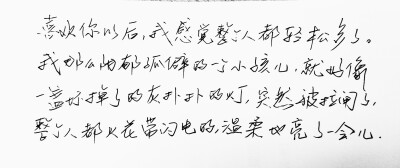 喜欢你以后,我感觉整个人都轻松多了。
我那么内都孤僻的一个小孩儿,就好像
一盏坏掉了的灰扑扑的灯,突然被拉闸了,
整个人都火花带闪电的,温柔地亮了一会儿.